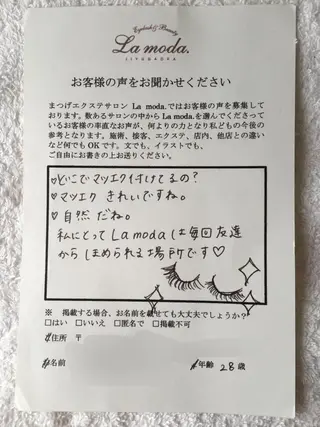 Eyelash & Beauty
La moda.
JIYUGAOKA
お客様の声をお聞かせください
まつげエクステサロン La moda.ではお客様の声を募集して
おります。数あるサロンの中から La moda.を選んでくださってい
るお客様の率直なお声が、何よりの力となり私どもの今後の
参考となります。施術、接客、エクステ、店内、他店との違い
など何でもOKです。文でも、イラストでも、
ご自由にお書きの上お送りください。
♡どこでマツエク付けてるの?
♡マツエク きれいですね。
♡自然だね。
私にとって La moda は毎回友達
から ほめられる場所です♡
※ 掲載する場合、お名前を載せても大丈夫でしょうか?
□はい □いいえ □匿名で □掲載不可
#住所 〒
#名前 #年齢 28歳